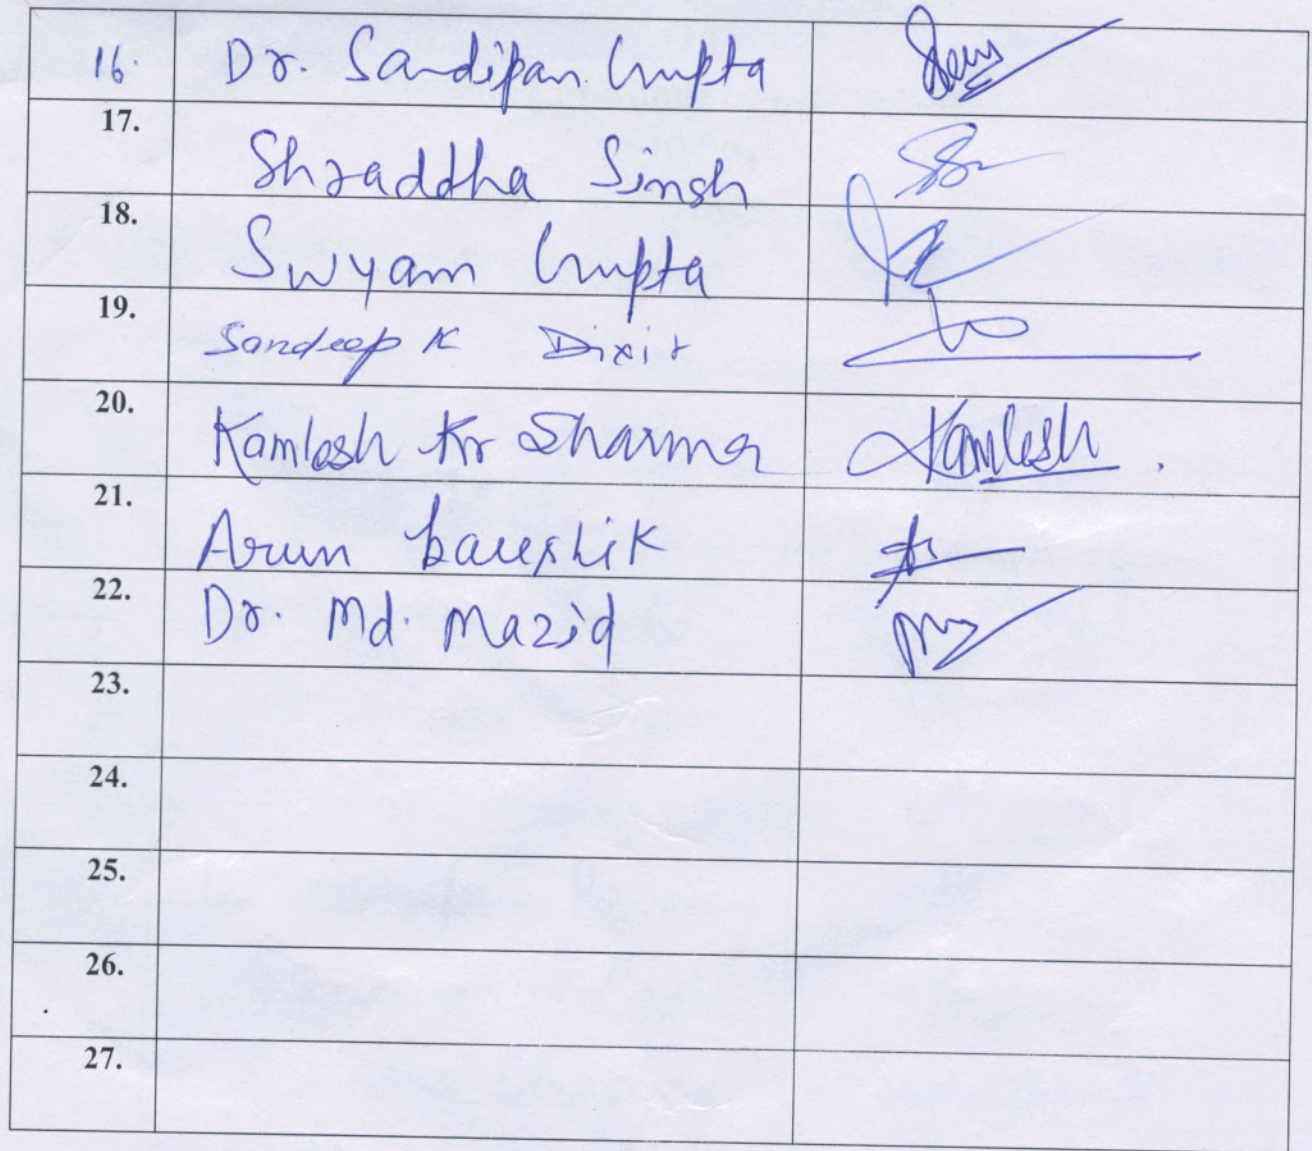 16. Dr. Sandipan Gupta
17. Shraddha Singh
18. Swyam Gupta
19. Sandeep K Dixit
20. Kamlesh Kr Sharma Kamlesh
21. Arun Kaushik
22. Dr. Md. Mazid
23.
24.
25.
26.
27.